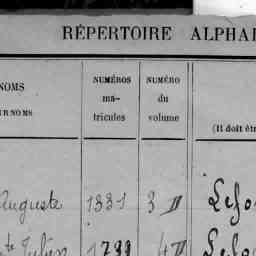 RÉPERTOIRE ALPHA
NOMS
NUMÉROS
ma-
tricules
NUMÉRO
du
volume
(Il doit êtr
Auguste 1331 3 II
1799 4 II